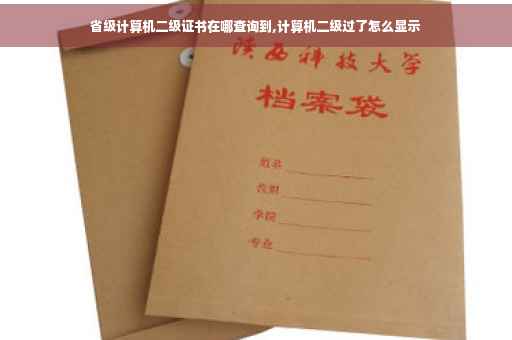 省级计算机二级证书在哪查询到,计算机二级过了怎么显示
陕西科技大学
档案袋
姓名
班级
学院
专业